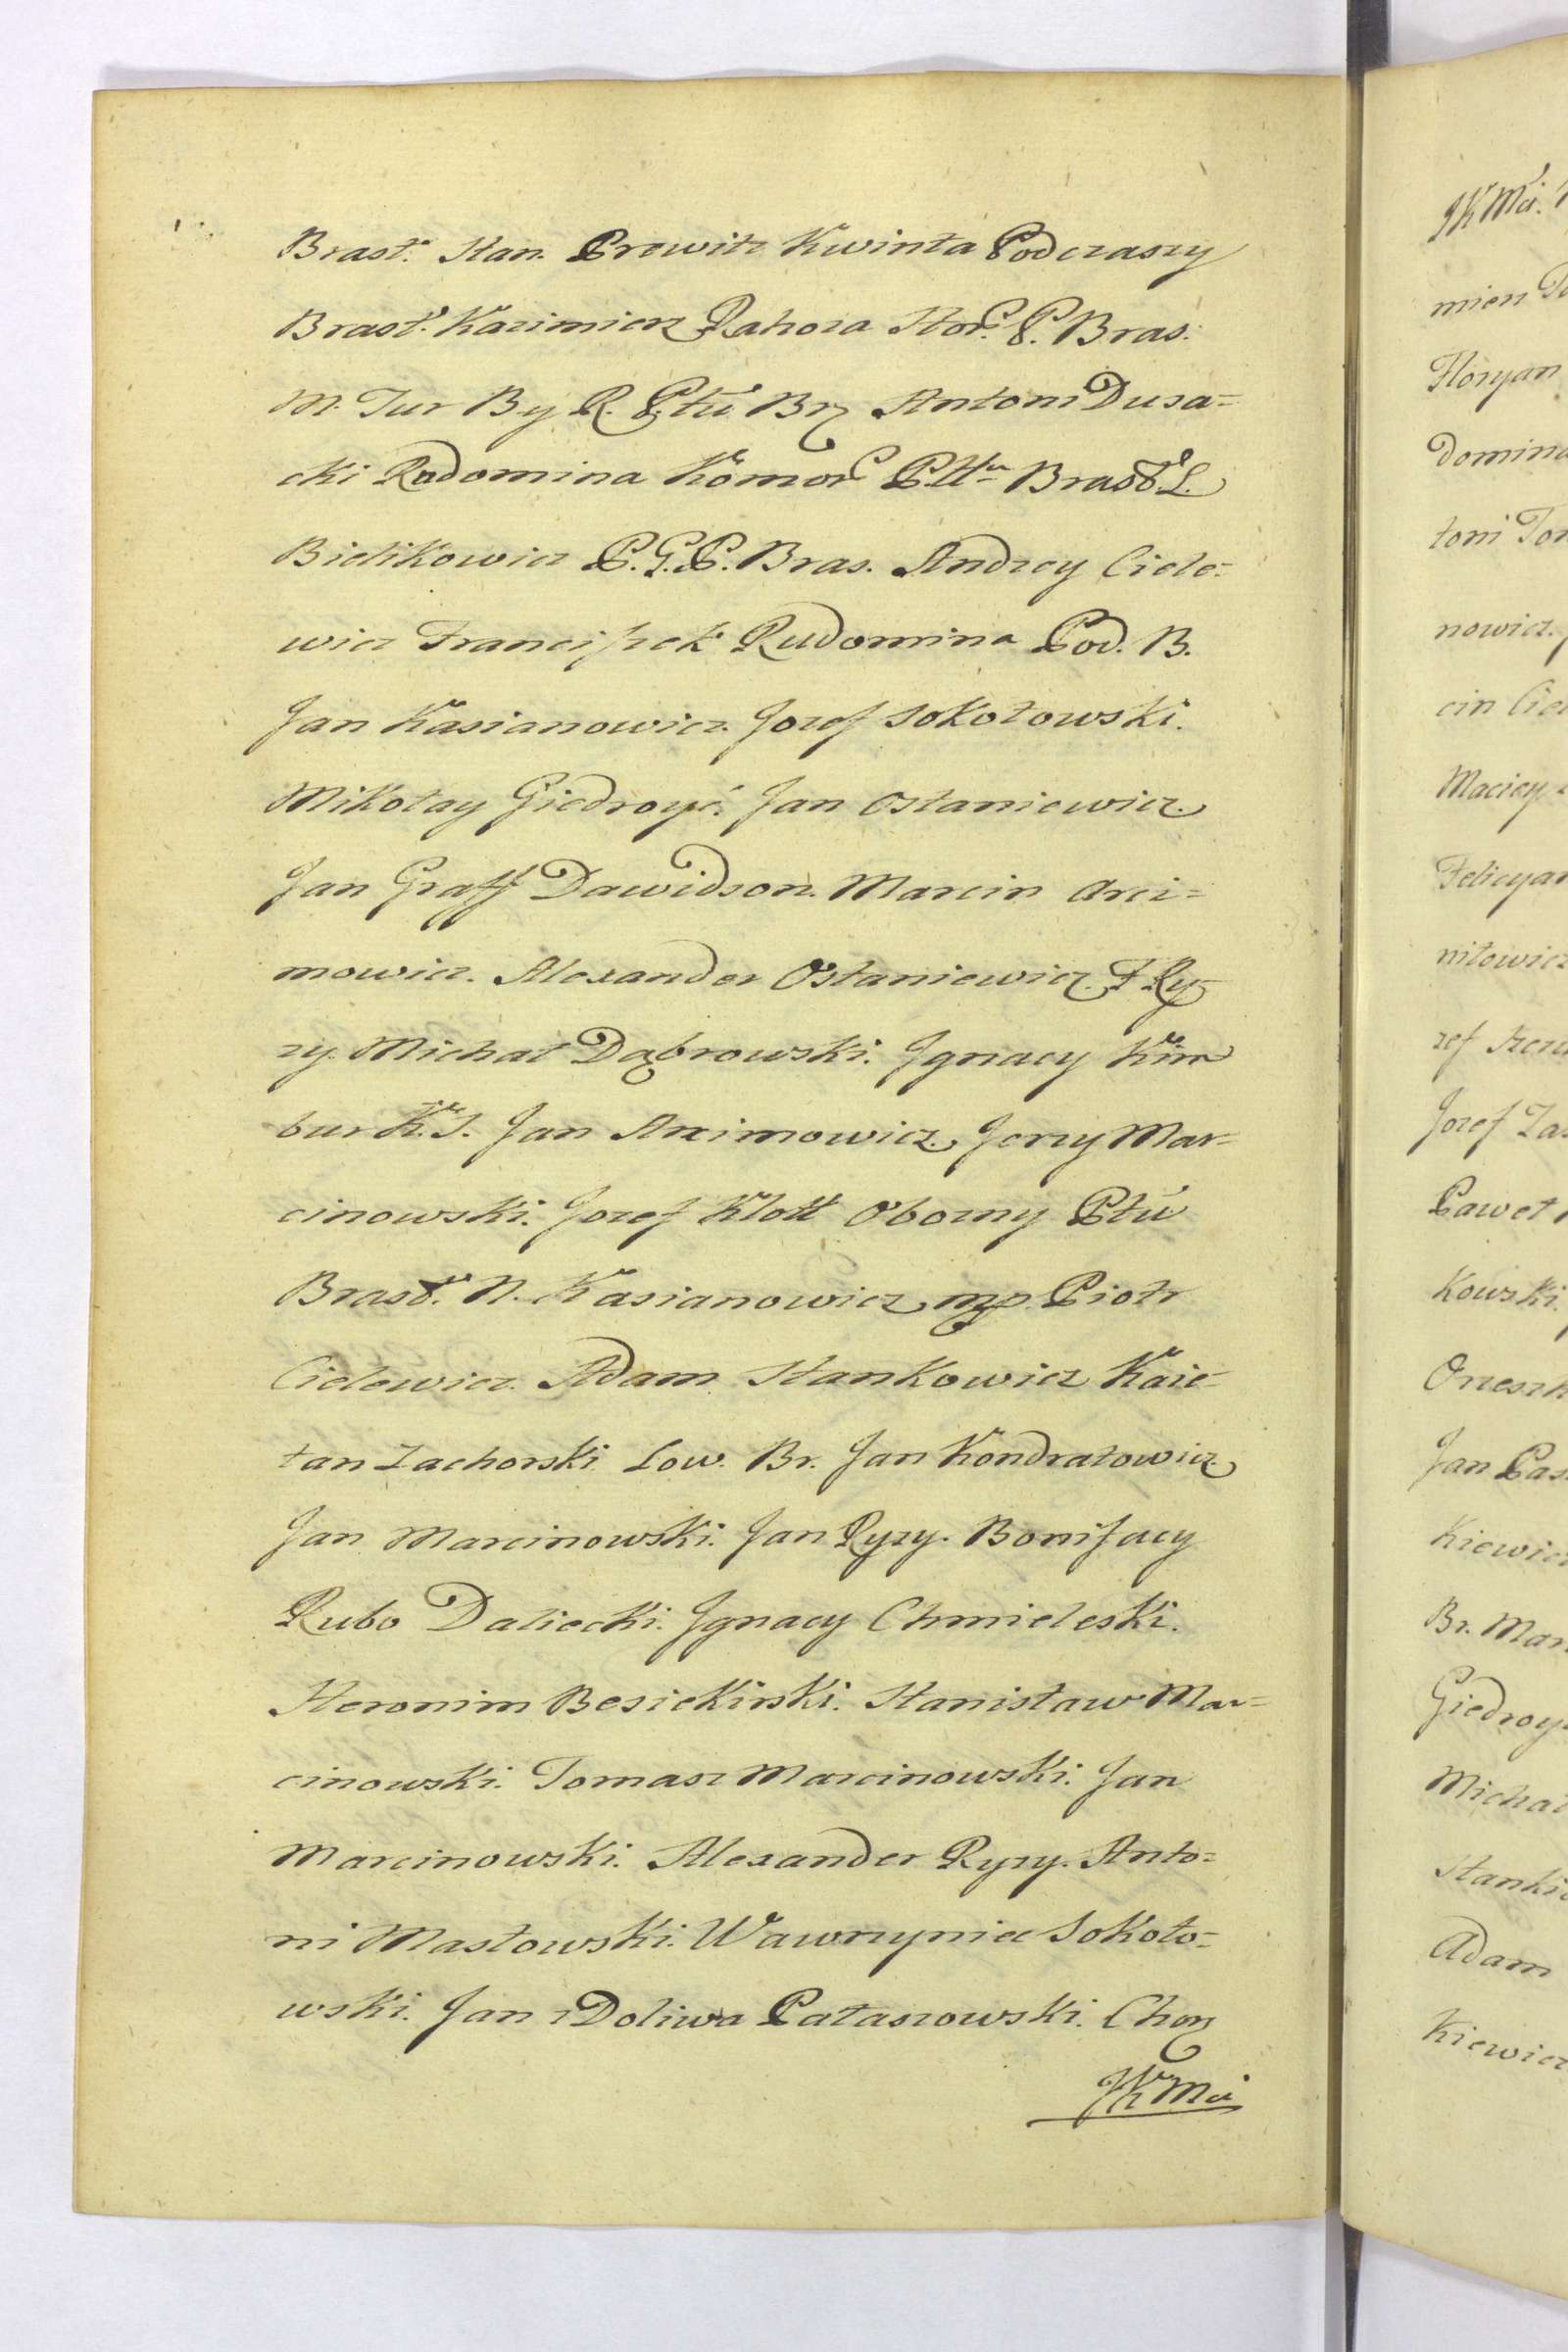 Brast. Stan. Prewitz Kwinta Podczaszy
Brast. Kazimierz Rahoza Hor. P. Bras.
M. Tur By R. Ptu Brz Antoni Dusa=
cki Rudomina Komor Ptt Brasł. L.
Bielikowicz P. G. P. Bras. Andrzey Ciele=
wicz Franciszek Rudomina Pod. B.
Jan Kasianowicz. Jozef Sokołowski.
Mikołay Giedroyć. Jan Ostaniewicz
Jan Graff Dawidson. Marcin Arci=
mowicz. Alexander Ostaniewicz. F Ry=
zy. Michał Dąbrowski. Ignacy Kim
bur K. S. Jan Arcimowicz. Jerzy Mar=
cinowski. Jozef Klott Oborny Ptu
Brasł. N. Kasianowicz mp. Piotr
Cielewicz. Adam Stankowicz Kaie=
tan Zachorski Łow. Br. Jan Kondratowicz
Jan Marcinowski. Jan Ryzy. Bonifacy
Rubo Daliecki. Ignacy Chmieleski.
Heronim Besiekirski. Stanisław Mar=
cinowski. Tomasz Marcinowski. Jan
Marcinowski. Alexander Ryzy. Anto=
ni Masłowski. Wawrzyniec Sokoło=
wski. Jan z Doliwa Pataszowski. Chor
JKMci
JKMci.
mien
Floryan
Domina
toni
nowicz.
cin
Maciey
Felicyan
nitowicz
zef
Jozef
Paweł
kowski.
Orzeszk
Jan
kiewicz
Br. Mar
Giedroy
Michał
Stanki
Adam
kiewicz